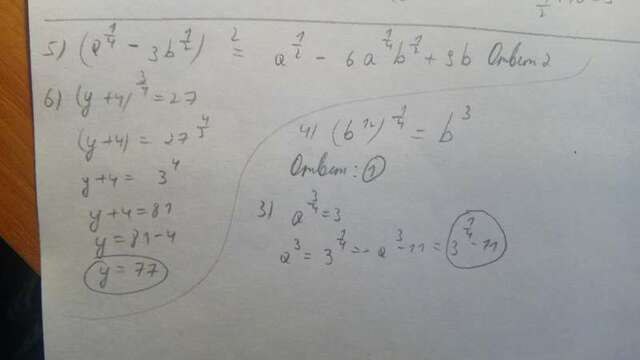 5) (a^{1/4} - 3b^{1/2})^2 = a^{1/2} - 6a^{1/4}b^{1/2} + 9b Ответ 2
6) (y+4)^{3/4} = 27
(y+4) = 27^{4/3}
y+4 = 3^4
y+4 = 81
y = 81-4
y = 77
4) (b^{12})^{1/4} = b^3
Ответ: 1
3) a^{3/4} = 3
a^3 = 3^{1/4} = - a^3 - 11 = 3^{1/4} - 11